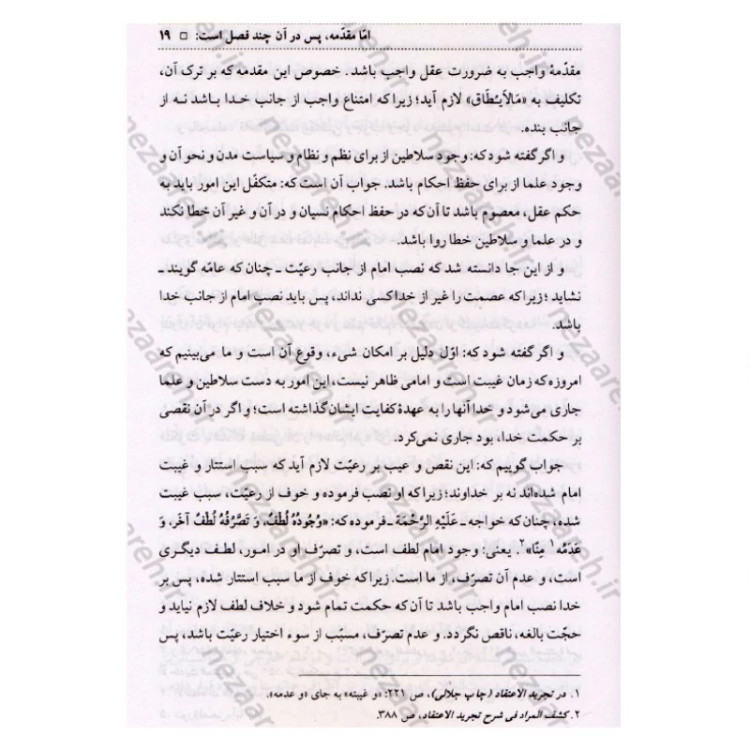 امّا مقدّمه، پس در آن چند فصل است: □ ۱۹
مقدّمهٔ واجب به ضرورت عقل واجب باشد. خصوص این مقدمه که بر ترک آن،
تکلیف به «مَالاَیُطَاق» لازم آید؛ زیرا که امتناع واجب از جانب خدا باشد نه از
جانب بنده.
و اگر گفته شود که: وجود سلاطین از برای نظم و نظام و سیاست مدن و نحو آن و
وجود علما از برای حفظ احکام باشد. جواب آن است که: متکفّل این امور باید به
حکم عقل، معصوم باشد تا آن که در حفظ احکام نسیان و در آن و غیر آن خطا نکند
و در علما و سلاطین خطا روا باشد.
و از این جا دانسته شد که نصب امام از جانب رعیّت ـ چنان که عامّه گویند ـ
نشاید؛ زیرا که عصمت را غیر از خدا کسی نداند، پس باید نصب امام از جانب خدا
باشد.
و اگر گفته شود که: اوّل دلیل بر امکان شیء، وقوع آن است و ما می‌بینیم که
امروزه که زمان غیبت است و امامی ظاهر نیست، این امور به دست سلاطین و علما
جاری می‌شود و خدا آنها را به عهدهٔ کفایت ایشان گذاشته است؛ و اگر در آن نقصی
بر حکمت خدا، بود جاری نمی‌کرد.
جواب گوییم که: این نقص و عیب بر رعیّت لازم آید که سبب استتار و غیبت
امام شده‌اند نه بر خداوند؛ زیرا که او نصب فرموده و خوف از رعیّت، سبب غیبت
شده، چنان که خواجه ـ عَلَیْهِ الرَّحْمَة ـ فرموده که: «وُجُودُهُ لُطْفٌ، وَ تَصَرُّفُهُ لُطْفٌ آخَر، وَ
عَدَمُه ۱ مِنَّا» ۲. یعنی: وجود امام لطف است، و تصرّف او در امور، لطف دیگری
است، و عدم آن تصرّف، از ما است. زیرا که خوف از ما سبب استتار شده، پس بر
خدا نصب امام واجب باشد تا آن که حکمت تمام شود و خلاف لطف لازم نیاید و
حجّت بالغه، ناقص نگردد. و عدم تصرّف، مسبّب از سوء اختیار رعیّت باشد، پس
۱. در تجرید الاعتقاد (چاپ جلالی)، ص ۲۲۱: «و غیبته» به جای «و عدمه».
۲. کشف المراد فی شرح تجرید الاعتقاد، ص ۳۸۸.
nezaareh.ir